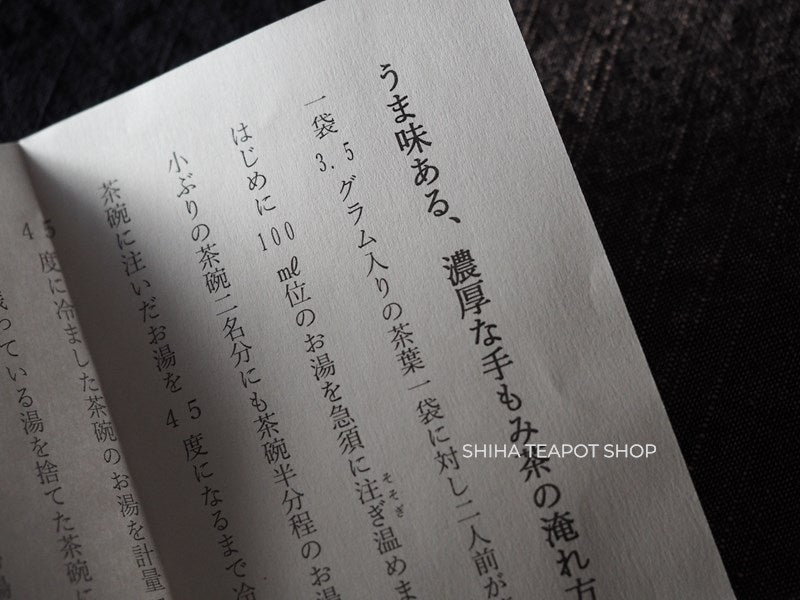 うま味ある、濃厚な手もみ茶の淹れ方
一袋 3.5 グラム入りの茶葉一袋に対し二人前が
はじめに 100 ㎖位のお湯を急須に注ぎ温めま
そそぎ
小ぶりの茶碗二名分にも茶碗半分程のお湯
茶碗に注いだお湯を 45 度になるまで冷
45 度に冷ました茶碗のお湯を計量
残っている湯を捨てた茶碗に
SHIHA TEAPOT SHOP